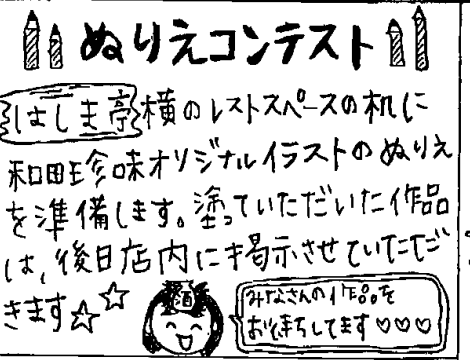 ぬりえコンテスト
はしま亭横のレストスペースの机に
和田珍味オリジナルイラストのぬりえ
を準備します。塗っていただいた作品
は、後日店内に掲示させていただ
きます☆☆
酒
みなさんの作品を
お待ちしてます♡♡♡